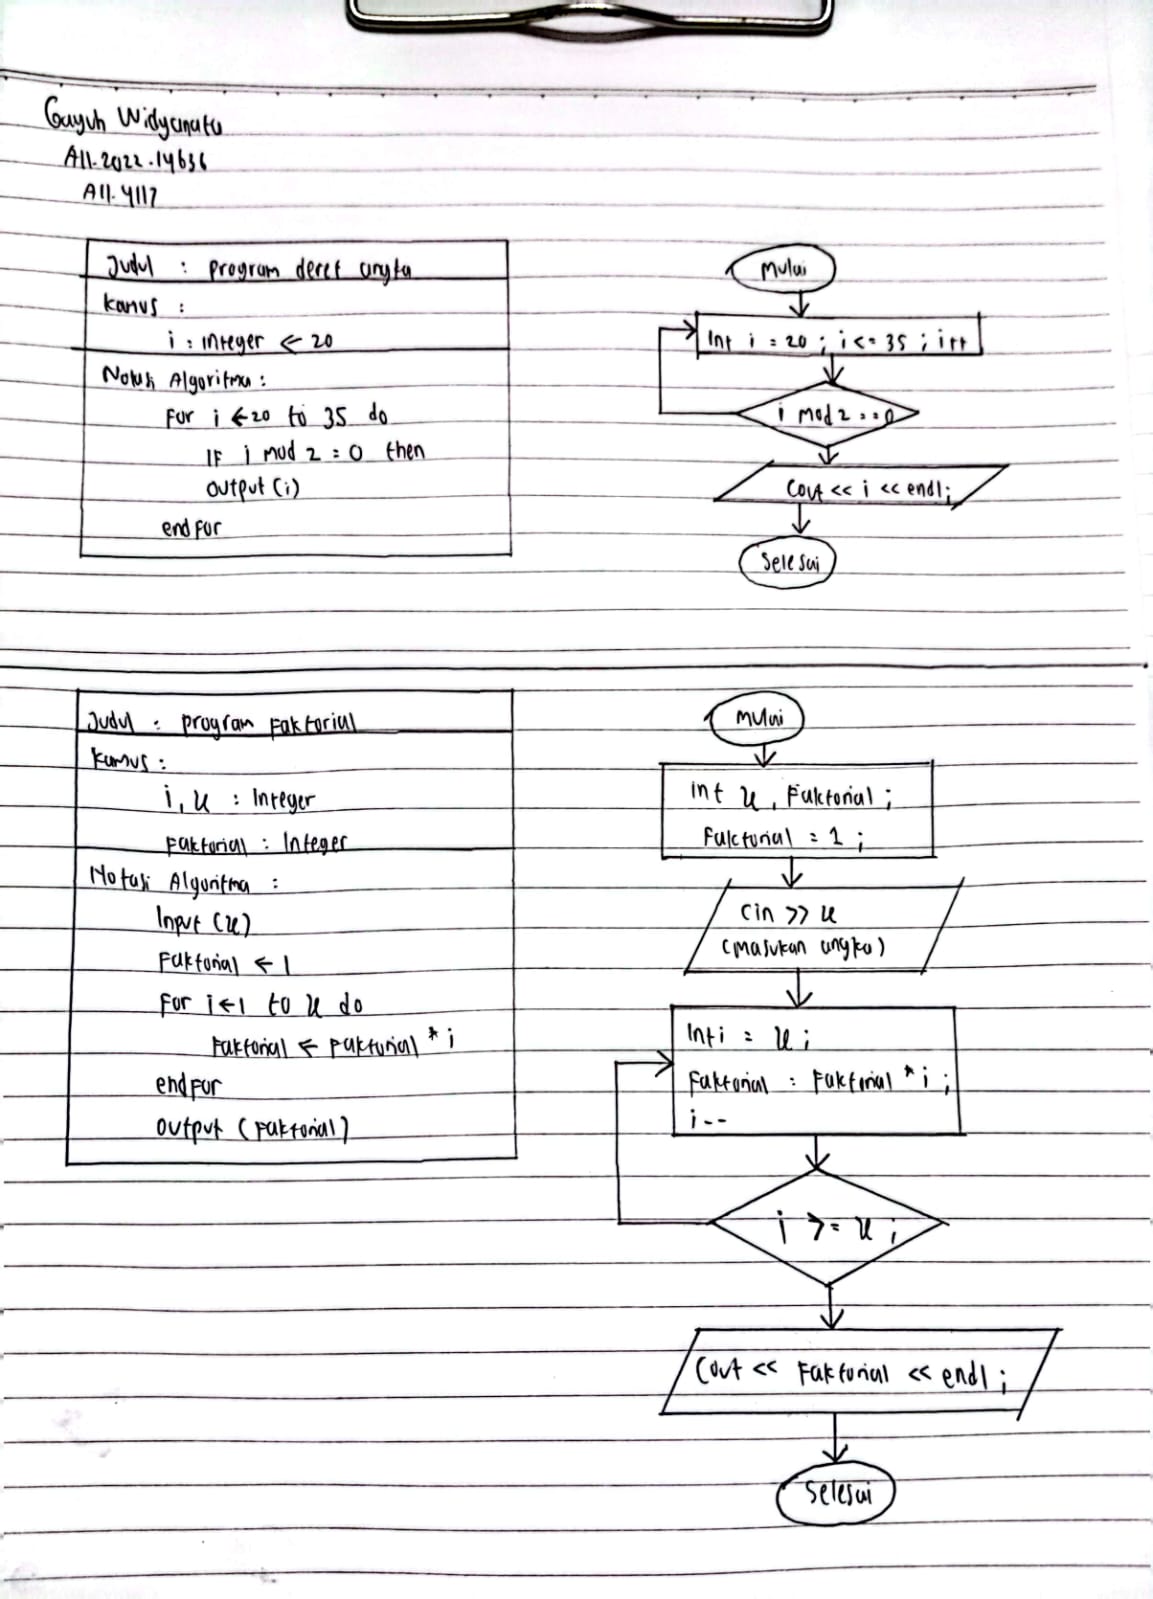 Gayuh Widyanata
A11.2022.14636
A11.4117
Judul : program deret angka
Kamus :
i : integer ← 20
Notasi Algoritma :
For i ← 20 to 35 do
IF i mod 2 = 0 then
output (i)
end for
Mulai
Int i = 20 ; i <= 35 ; i++
i mod 2 == 0
Cout << i << endl;
Selesai
Judul : program Faktorial
Kamus :
i, x : Integer
Faktorial : Integer
Notasi Algoritma :
Input (x)
Faktorial ← 1
For i ← 1 to x do
Faktorial ← Faktorial * i
end for
output (Faktorial)
Mulai
Int x, Faktorial ;
Faktorial = 1 ;
Cin >> x
(Masukan angka)
Int i = x ;
Faktorial = Faktorial * i ;
i--
i >= x ;
Cout << Faktorial << endl ;
Selesai